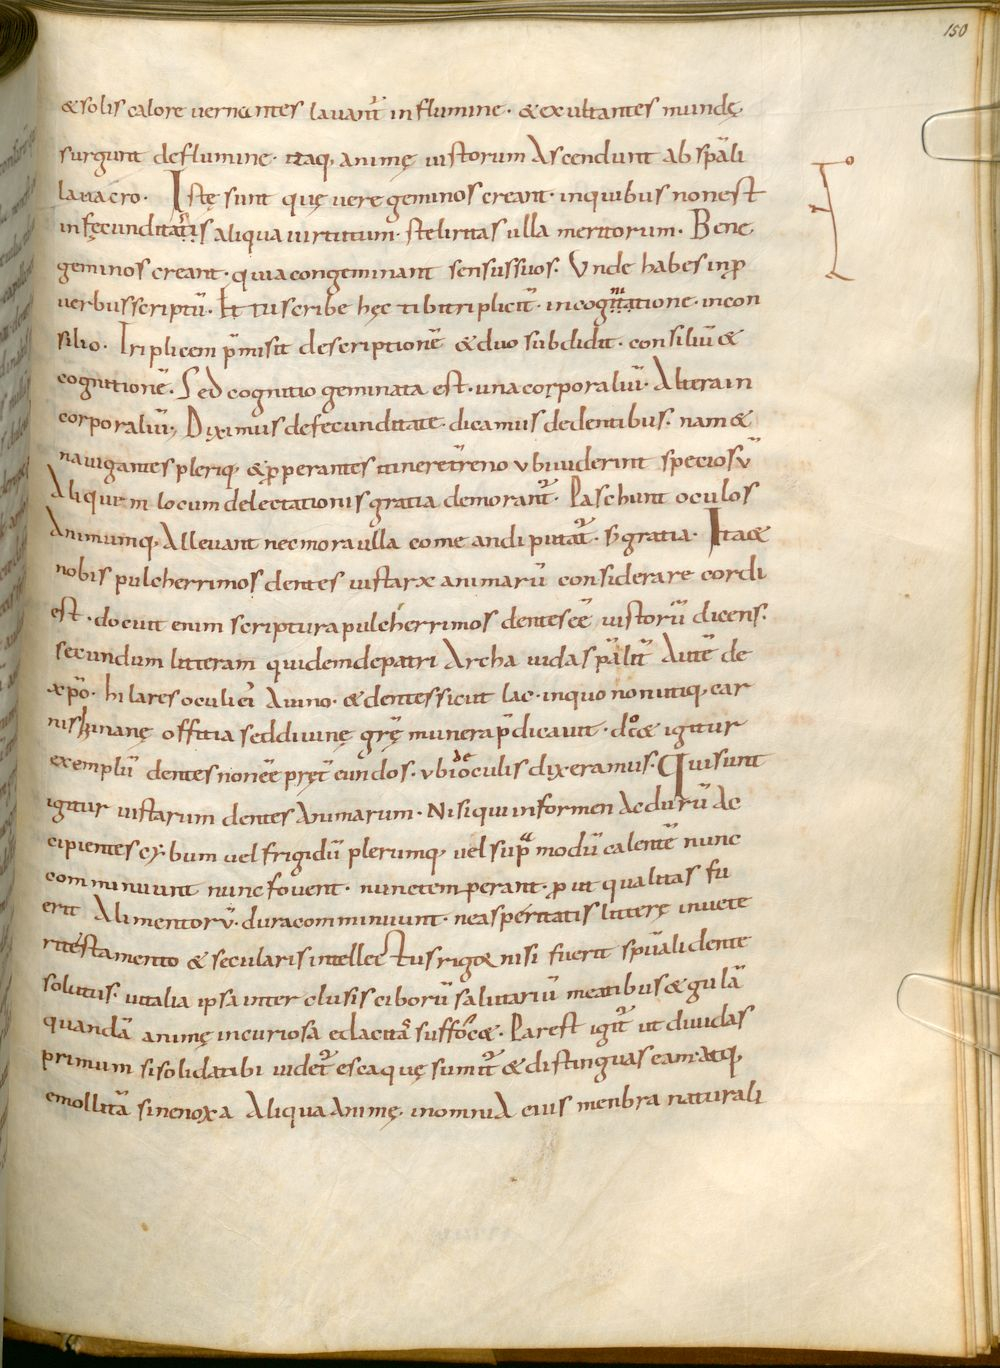 150
& solis calore vernantes lavant̄ in flumine · & exultantes mundę
surgunt de flumine · itaq, animę iustorum Ascendunt ab sp̄ali
lavacro · Istę sunt quę vere geminos creant · in quibus non est
infęcunditatis aliqua uirtutum · sterilitas ulla meritorum · Bene
geminos creant · quia congeminant sensus suos · Vnde habes in ꝓ
verbus scriptū · Et tu scribe hęc tibi triplicit̄ · in cognitatione · in con
silio · Triplicem p̄misit descriptionē & duo subdidit · consiliū &
cognitionē · Sed cognitio geminata est · una corporaliū · Altera in
corporaliū, Diximus de fecunditate · dicamus de dentibus · nam &
navigantes pleriq, & ꝓperantes itinere t̄reno vbi uiderint speciosū
Aliquem locum delectationis gratia demorant̄ · Paschunt oculos
Animumq, Allevant nec mora ulla comeandi putat̄ · s; gratia · Ita &
nobis pulcherrimos dentes iustarx animarū considerare cordi
est · docuit enim scriptura pulcherrimos dentes eē iustorū dicens ·
secundum litteram quidem de patriArcha iuda sp̄alit̄ Autē de
xp̄o · hilares oculi ei Auino · & dentes sicut lac · in quo non utiq, car
nis humanę offitia sed divinę gr̄ę munera p̄dicavit · doc& igitur
exemplū dentes non eē pręt̄eundos · vbi de oculis dixeramus · Qui sunt
igitur iustarum dentes Animarum · Nisi qui informen Ac durū Ac
cipientes cybum uel frigidū plerumq, uel sup̄a modū calentē nunc
comminuunt nunc fovent · nunc temperant · ꝓ ut qualitas fu
erit Alimentorū · dura comminuunt · ne asperitatis litterę in uete
ri testamento & secularis intellectus rig& nisi fuerit sp̄uali dente
solutus · uitalia ipsa interclusis ciborū salutariū meatibus & gulā
quandā animę incuriosa edacitas suffoc& · Par est igit̄ ut dividas
primum si solida tibi videt̄ esca quę sumit̄ & distinguas eam · atq,
emollitā sine noxa Aliqua Animę, in omniA eius menbra naturali